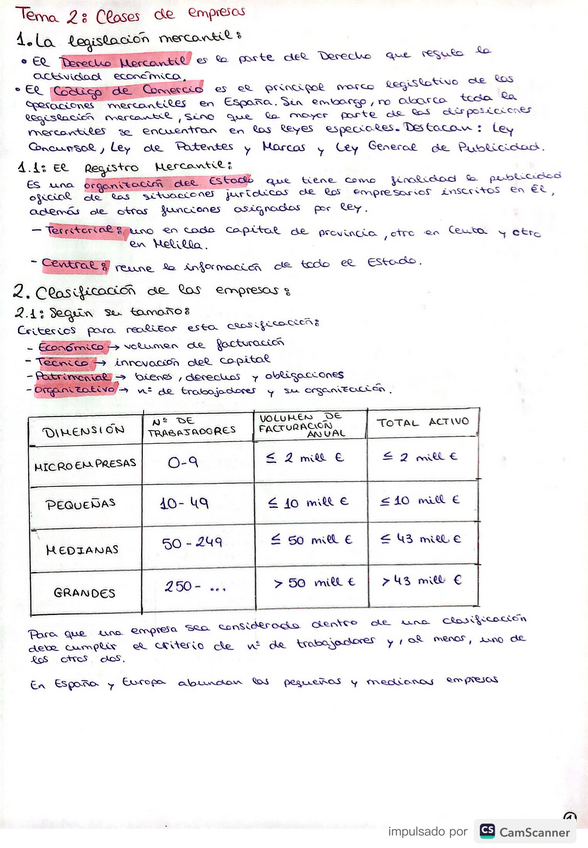 Tema 2: Clases de empresas
1. La legislación mercantil:
• El Derecho Mercantil es la parte del Derecho que regula la
actividad económica.
• El Código de Comercio es el principal marco legislativo de las
operaciones mercantiles en España. Sin embargo, no abarca toda la
legislación mercantil, sino que la mayor parte de las disposiciones
mercantiles se encuentran en las leyes especiales. Destacan: Ley
Concursal, Ley de Patentes y Marcas y Ley General de Publicidad.
1.1: El Registro Mercantil:
Es una organización del Estado que tiene como finalidad la publicidad
oficial de las situaciones jurídicas de los empresarios inscritos en él,
además de otras funciones asignadas por ley.
- Territorial: uno en cada capital de provincia, otro en Ceuta y otro
en Melilla.
- Central: reune la información de todo el Estado.
2. Clasificación de las empresas:
2.1: Según su tamaño:
Criterios para realizar esta clasificación:
- Económico → volumen de facturación
- Técnico → innovación del capital
- Patrimonial → bienes, derechos y obligaciones
- Organizativo → nº de trabajadores y su organización.
DIMENSIÓN | Nº DE TRABAJADORES | VOLUMEN DE FACTURACIÓN ANUAL | TOTAL ACTIVO
MICROEMPRESAS | 0-9 | ≤ 2 mill € | ≤ 2 mill €
PEQUEÑAS | 10-49 | ≤ 10 mill € | ≤ 10 mill €
MEDIANAS | 50-249 | ≤ 50 mill € | ≤ 43 mill €
GRANDES | 250- ... | > 50 mill € | > 43 mill €
Para que una empresa sea considerada dentro de una clasificación
debe cumplir el criterio de nº de trabajadores y, al menos, uno de
los otros dos.
En España y Europa abundan las pequeñas y medianas empresas
1
impulsado por CS CamScanner